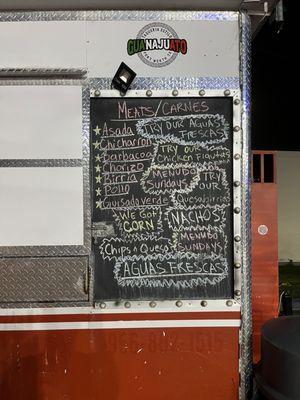 TAQUERIA ESTILO
GUANAJUATO
FORT WORTH TX
MEATS/CARNES
Asada
Chicharron
Barbacoa
Chorizo
Birria
Pollo
Guisado Verde
TRY OUR AGUAS
FRESCAS
TRY OUR
Chicken Flautas
MENUDO
Sundays
TRY
OUR
Quesabirrias
WE GOT
CORN
NACHOS
Chips n Queso
MENUDO
SUNDAYS
AGUAS FRESCAS